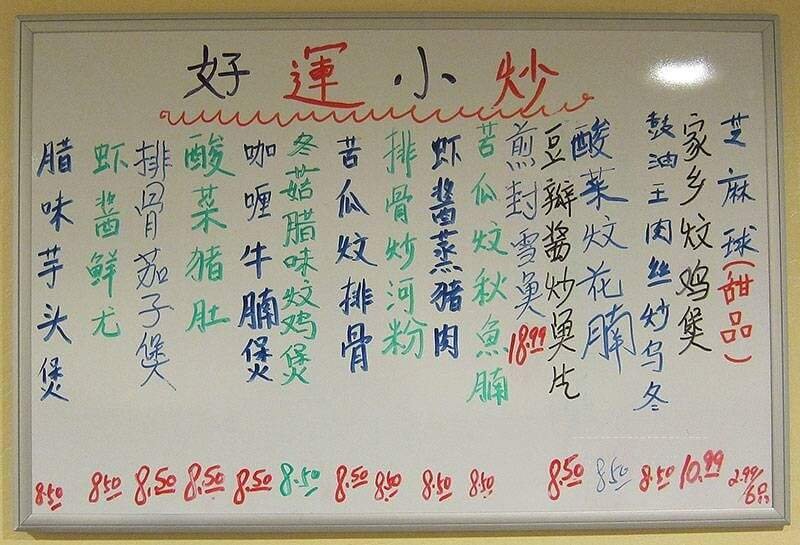 好運小炒
芝麻球(甜品)
2.99/6
家乡炆鸡煲
10.99
豉油王肉丝炒乌冬
8.50
酸菜炆花腩
8.50
豆瓣醬炒魚片
8.50
煎封雪魚
18.99
苦瓜炆秋魚腩
8.50
虾醬蒸猪肉
8.50
排骨炒河粉
8.50
苦瓜炆排骨
8.50
冬菇腊味炆鸡煲
8.50
咖喱牛腩煲
8.50
酸菜猪肚
8.50
排骨茄子煲
8.50
虾醬鲜尤
8.50
腊味芋头煲
8.50